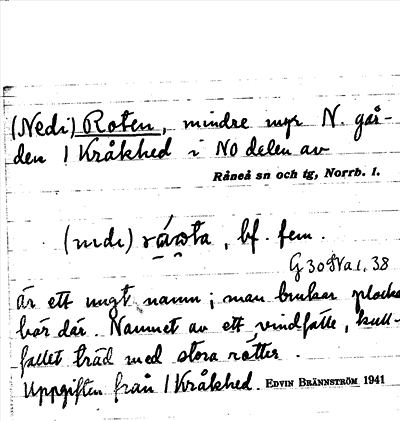 (Nedi) Roten, mindre myr N. går-
den 1 Kråkhed i NO delen av
Råneå sn och tg, Norrb. l.
(nɩdɩ) , bf. fem.
G 30 38
är ett ungt namn; man brukar plocka
bär där. Namnet av ett vindfälle, kull-
fallet träd med stora rötter.
Uppgiften från 1 Kråkhed. EDVIN BRÄNNSTRÖM 1941